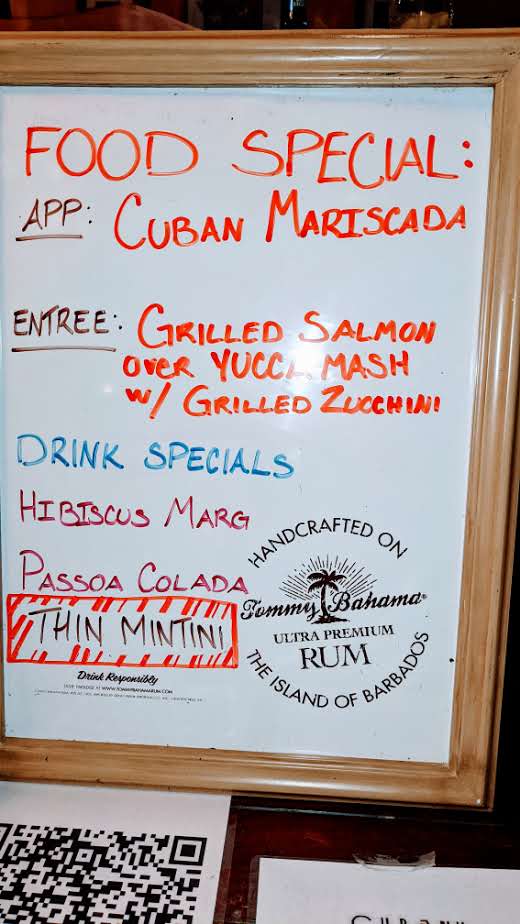 FOOD SPECIAL:
APP: CUBAN MARISCADA
ENTREE: GRILLED SALMON
OVER YUCCA MASH
W/ GRILLED ZUCCHINI
DRINK SPECIALS
HIBISCUS MARG
PASSOA COLADA
THIN MINTINI
HANDCRAFTED ON
Tommy Bahama
ULTRA PREMIUM
RUM
THE ISLAND OF BARBADOS
Drink Responsibly